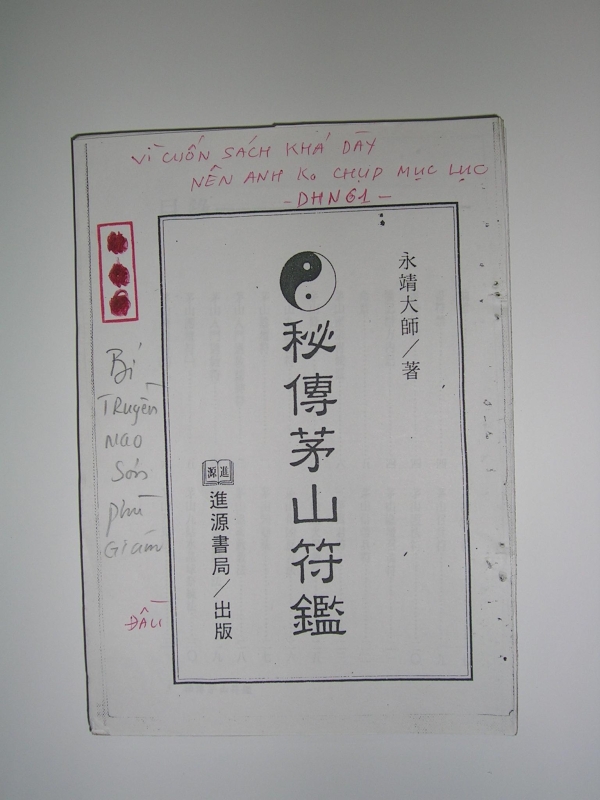 Vì CUỐN SÁCH KHÁ DÀY
NÊN ANH Ko CHỤP MỤC LỤC
- DHN61 -
永靖大師／著
秘傳茅山符鑑
進源
進源書局／出版
Bí
TRUYỀN
MAO
Sơn
phù
Giám
ĐẦU